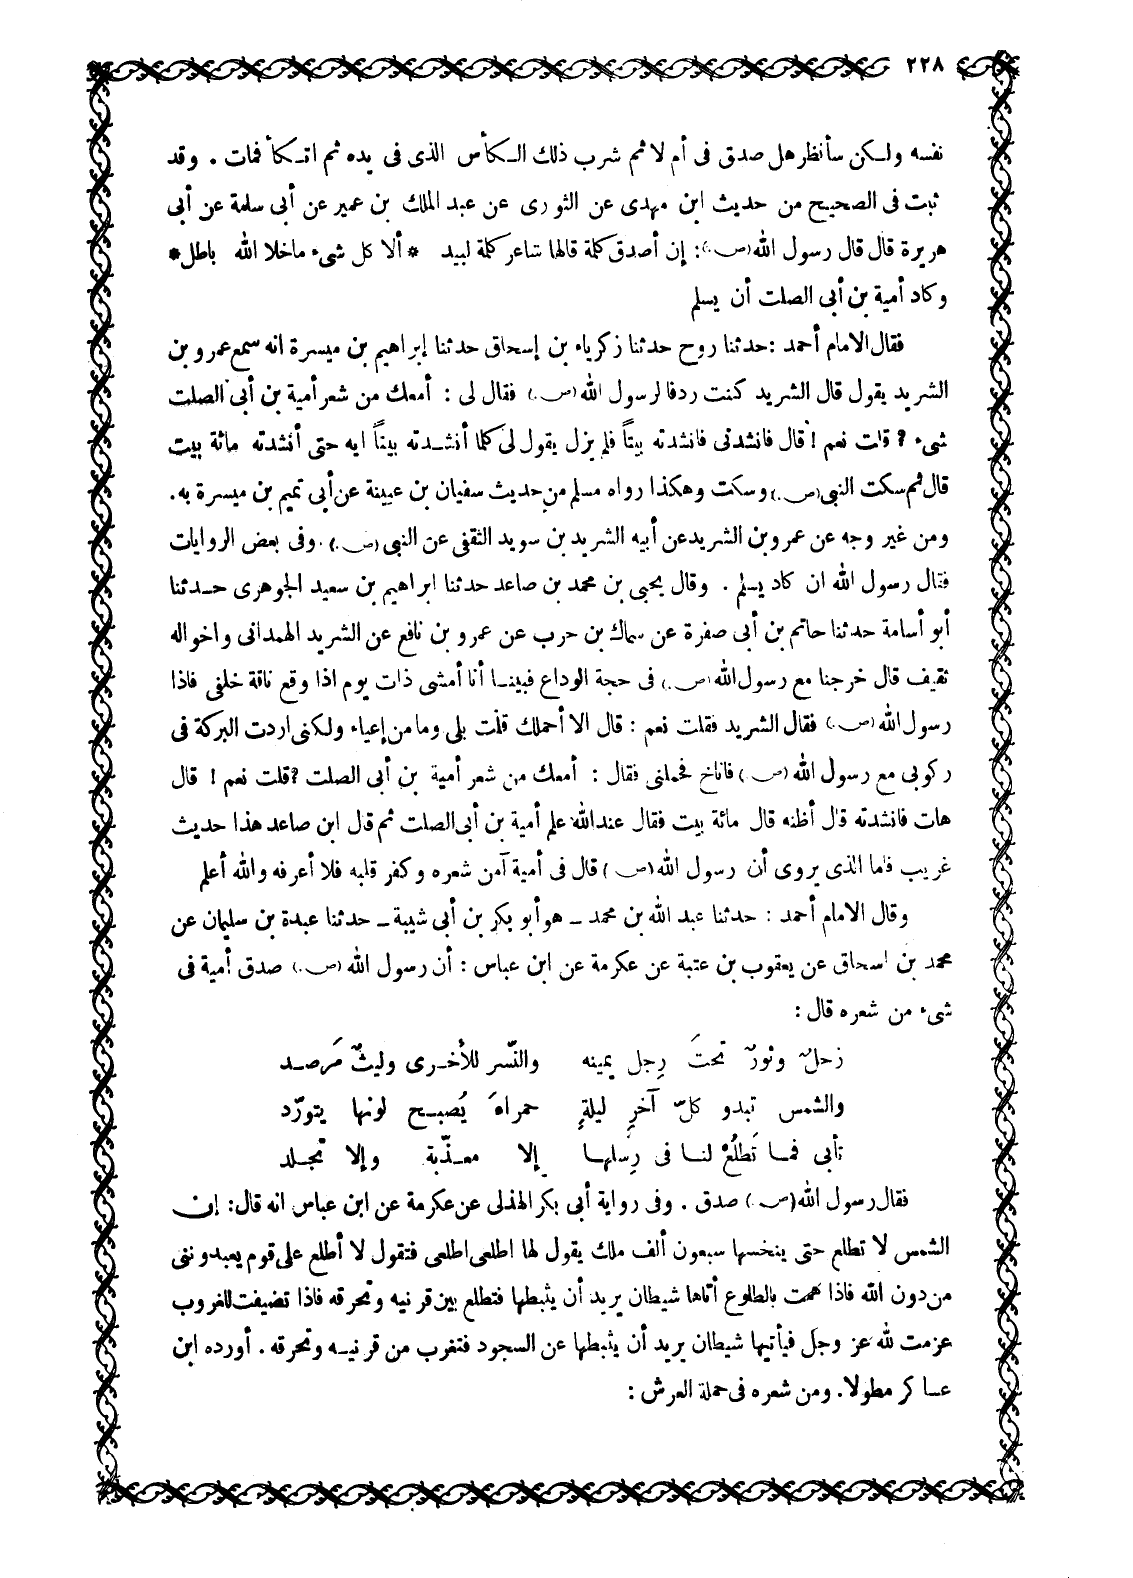 ٢٢٨
نفسه ولكن سأنظر هل صدق فى أم لا ثم شرب ذلك الكأس الذى فى يده ثم اتكأ فمات . وقد
ثبت فى الصحيح من حديث ابن مهدى عن الثورى عن عبد الملك بن عمير عن أبى سلمة عن أبى
هريرة قال قال رسول الله (ص.): إن أصدق كلمة قالها شاعر كلمة لبيد * ألا كل شىء ماخلا الله باطل *
وكاد أمية بن أبى الصلت أن يسلم
فقال الامام أحمد : حدثنا روح حدثنا زكرياء بن إسحاق حدثنا إبراهيم بن ميسرة انه سمع عمرو بن
الشريد يقول قال الشريد كنت ردفا لرسول الله (ص.) فقال لى : أمعك من شعر أمية بن أبى الصلت
شىء ? قلت نعم ! قال فانشدنى فانشدته بيتاً فلم يزل يقول لى كلما أنشدته بيتاً ايه حتى أنشدته مائة بيت
قال ثم سكت النبى (ص.) وسكت وهكذا رواه مسلم من حديث سفيان بن عيينة عن أبى تميم بن ميسرة به.
ومن غير وجه عن عمرو بن الشريد عن أبيه الشريد بن سويد الثقفى عن النبى (ص.) . وفى بعض الروايات
فقال رسول الله ان كاد يسلم . وقال يحيى بن محمد بن صاعد حدثنا ابراهيم بن سعيد الجوهرى حدثنا
أبو أسامة حدثنا حاتم بن أبى صفرة عن سماك بن حرب عن عمرو بن نافع عن الشريد الهمدانى واخواله
ثقيف قال خرجنا مع رسول الله (ص.) فى حجة الوداع فبينا أنا أمشى ذات يوم اذا وقع ناقة خلفى فاذا
رسول الله (ص.) فقال الشريد فقلت نعم : قال الا أحملك قلت بلى وما من إعياء ولكنى اردت البركة فى
ركوبى مع رسول الله (ص.) فاناخ فحملنى فقال : أمعك من شعر أمية بن أبى الصلت ? قلت نعم ! قال
هات فانشدته قال أظنه قال مائة بيت فقال عند الله علم أمية بن أبى الصلت ثم قال ابن صاعد هذا حديث
غريب فاما الذى يروى أن رسول الله (ص ) قال فى أمية آمن شعره وكفر قلبه فلا أعرفه والله أعلم
وقال الامام أحمد : حدثنا عبد الله بن محمد ـ هو أبو بكر بن أبى شيبة ـ حدثنا عبدة بن سليمان عن
محمد بن اسحاق عن يعقوب بن عتبة عن عكرمة عن ابن عباس : أن رسول الله (ص.) صدق أمية فى
شىء من شعره قال :
زحلٌ وثورٌ تحتَ رِجل يمينه والنّسر للأخرى وليثٌ مَرصد
والشمس تبدو كلّ آخرِ ليلةٍ حمراءَ يُصبح لونها يتورّد
تأبى فما تَطلُعْ لنا فى رِسلها إلا معذّبة وإلا تجلد
فقال رسول الله (ص.) صدق . وفى رواية أبى بكر الهذلى عن عكرمة عن ابن عباس انه قال : إن
الشمس لا تطلع حتى ينخسها سبعون ألف ملك يقول لها اطلعى اطلعى فتقول لا أطلع على قوم يعبدوننى
من دون الله فاذا همت بالطلوع أتاها شيطان يريد أن يثبطها فتطلع بين قرنيه وتحرقه فاذا تضيفت للغروب
عزمت لله عز وجل فيأتيها شيطان يريد أن يثبطها عن السجود فتغرب من قرنيه وتحرقه . أورده ابن
عساكر مطولا. ومن شعره فى حملة العرش :